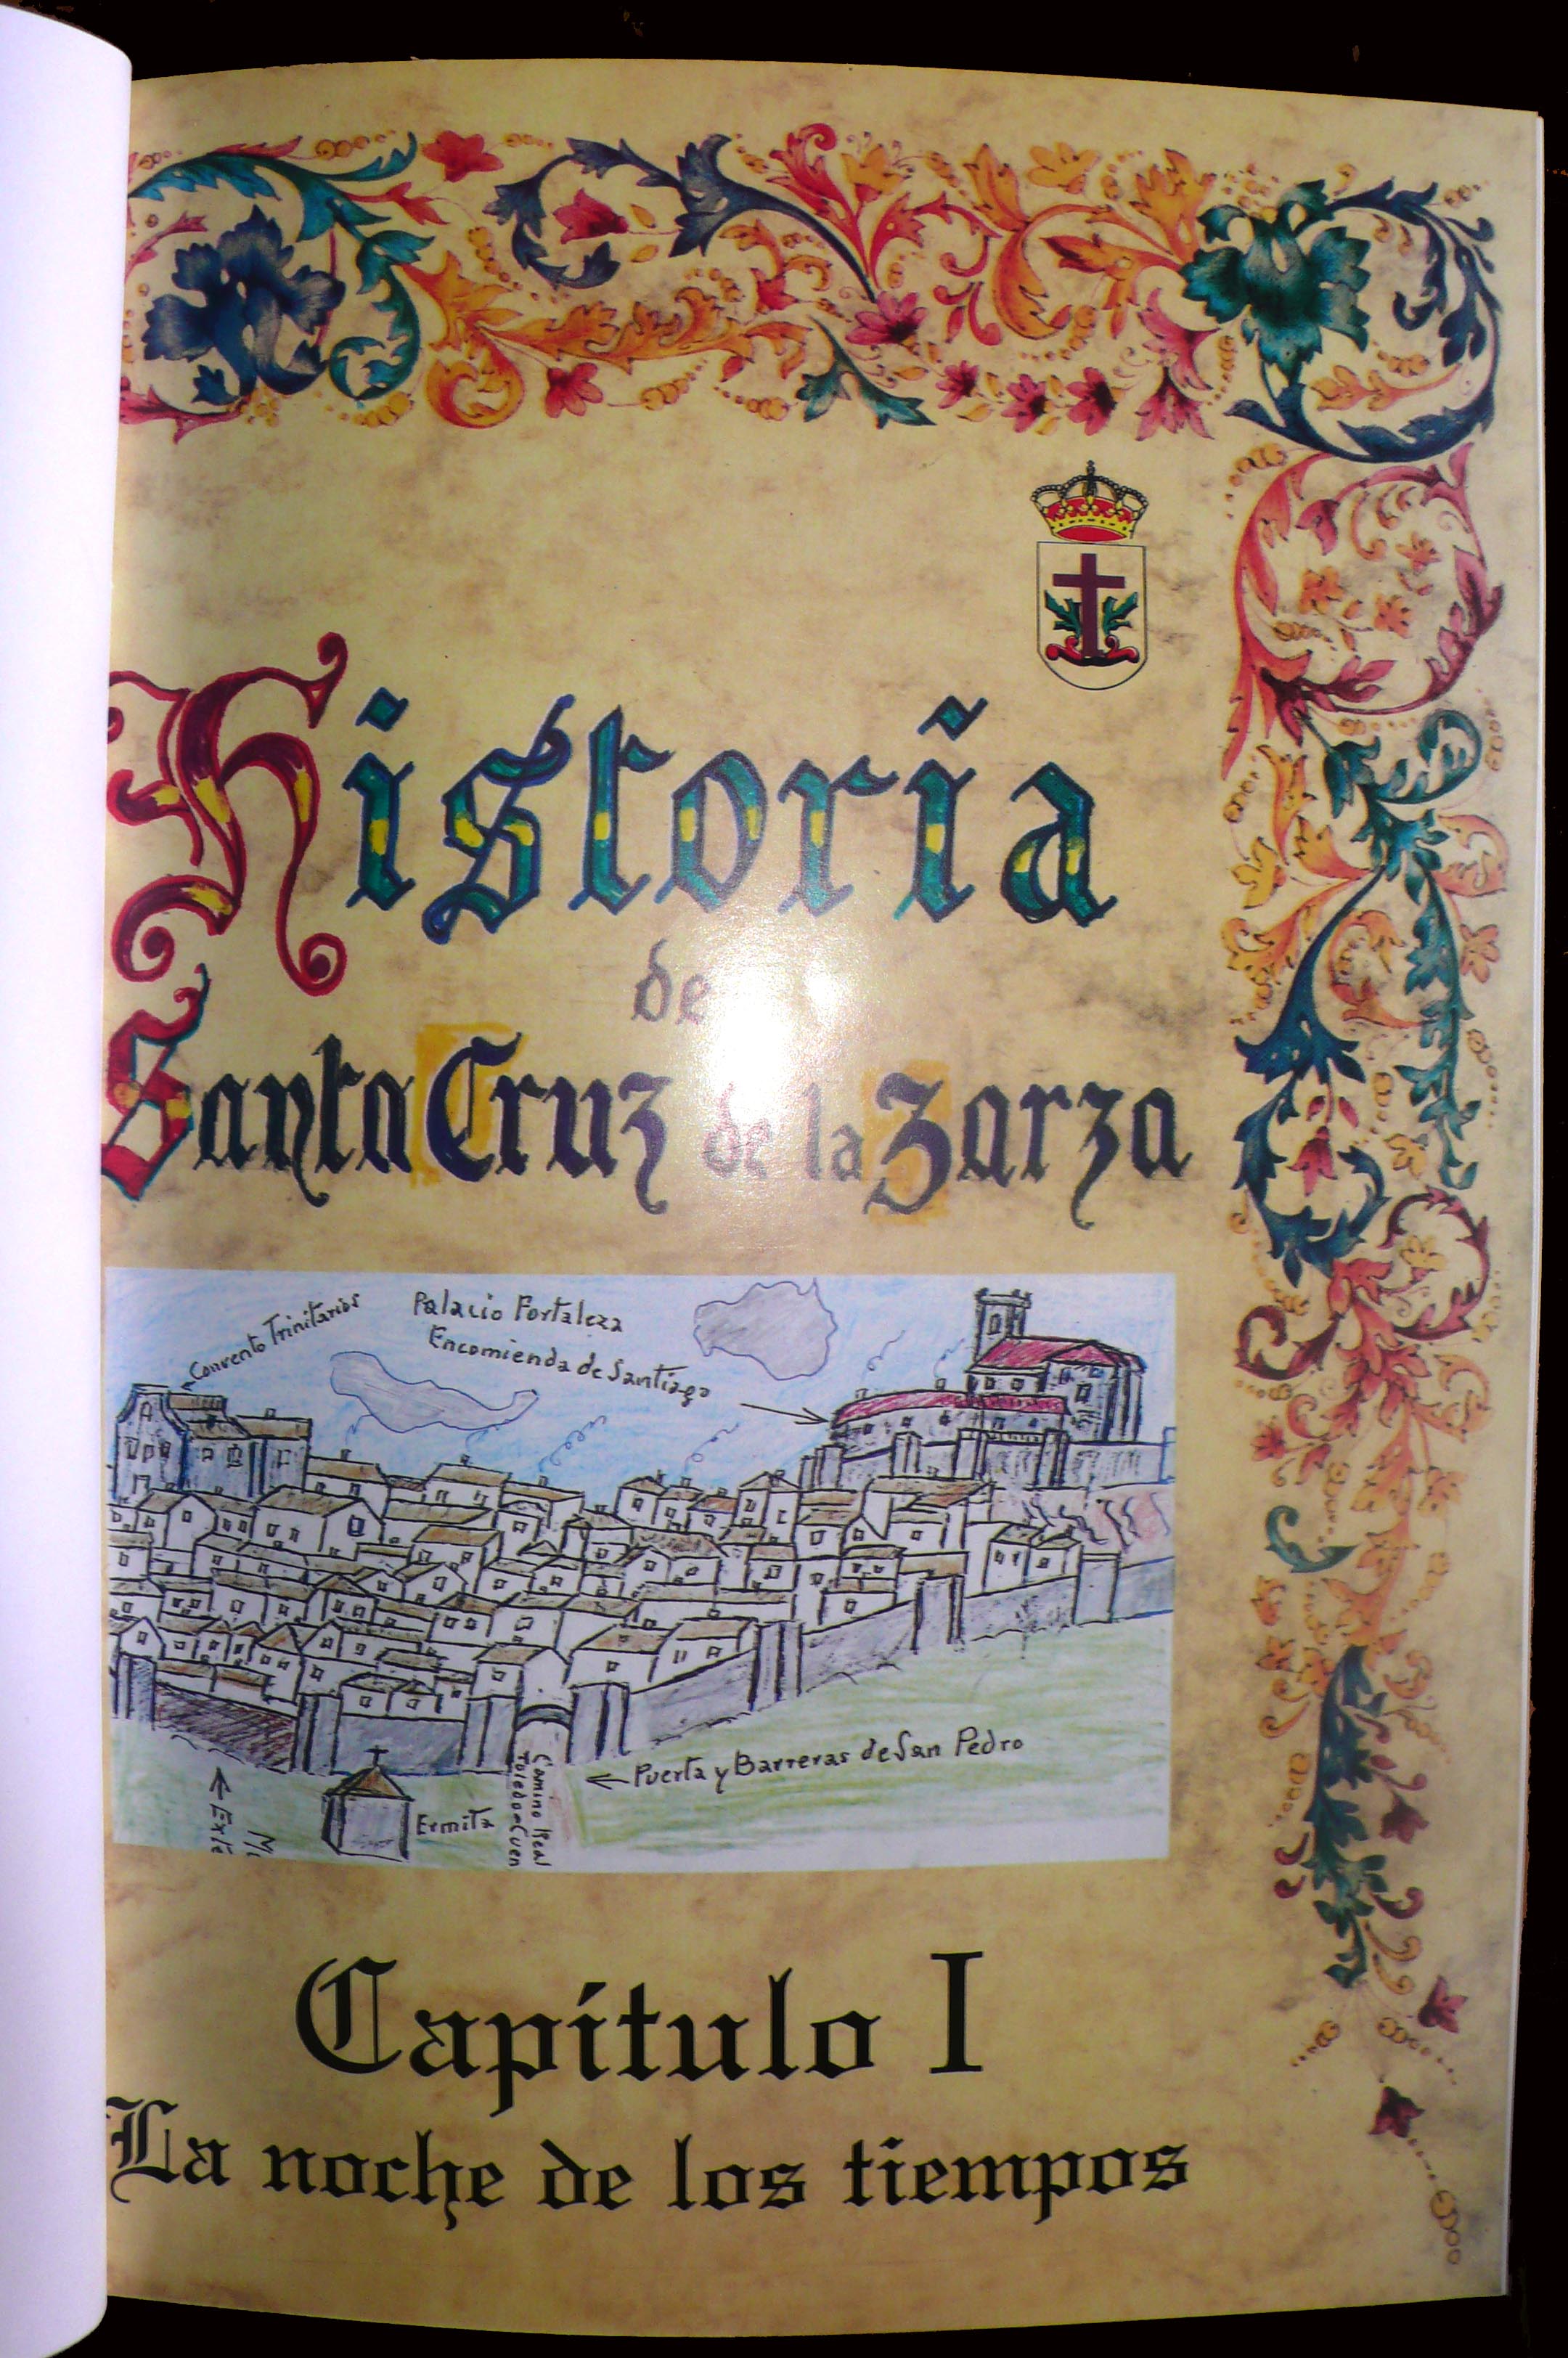 Historia
de
Santa Cruz de la Zarza
Convento Trinitarios
Palacio Fortaleza
Encomienda de Santiago
Puerta y Barreras de San Pedro
Ermita
Camino Real
Toledo-Cuen
Capítulo I
La noche de los tiempos